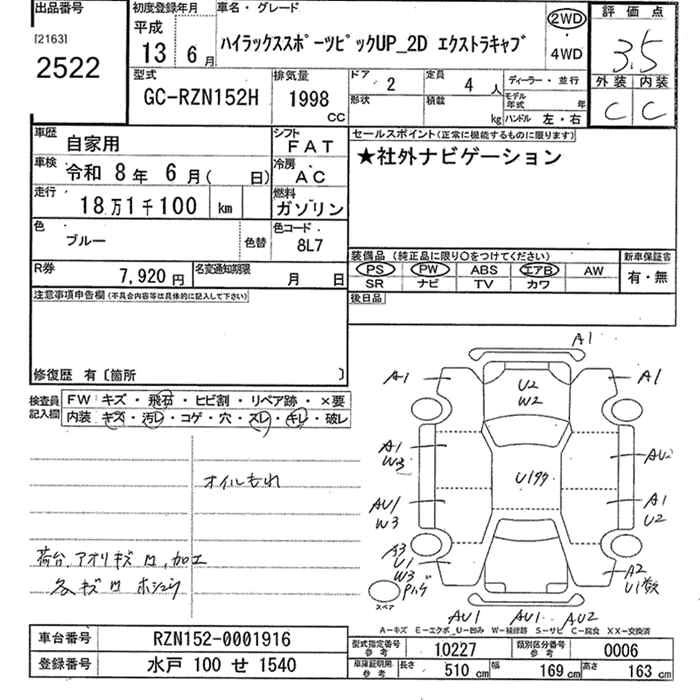 出品番号
[2163]
2522
初度登録年月
平成
13 6月
車名・グレード
ハイラックススポーツピックUP_2D エクストラキャブ
2WD
・
4WD
評価点
3.5
外装 内装
C C
型式
GC-RZN152H
排気量
1998
cc
ドア
2
定員
4人
形状
積載
kg
ディーラー・並行
モデル年式 年
ハンドル 左・右
車歴
自家用
シフト
FAT
車検
令和 8年 6月( 日)
冷房
AC
走行
18万1千100 km
燃料
ガソリン
色
ブルー
色替
色コード
8L7
R券
7,920円
名変通知期限
月 日
セールスポイント(正常に機能するものに限ります)
★社外ナビゲーション
装備品(純正品に限り○をつけてください)
PS PW ABS エアB AW
SR ナビ TV カワ
新車保証書
有・無
後日品
注意事項申告欄(不具合内容等は具体的に記入して下さい)
修復歴 有〔箇所 〕
検査員記入欄
FW キズ・飛石・ヒビ割・リペア跡・×要
内装 キズ・汚レ・コゲ・穴・スレ・キレ・破レ
オイルもれ
荷台,アオリキズ凹,加工
各キズ凹
A1
A1
A1
U2
W2
A1
W3
AU2
AU1
W3
A1
U2
A3
U1
W3
A2
U1数
スペア
AU1 AU1 AU2
A-キズ E-エクボ U-凹み W-補修跡 S-サビ C-腐食 XX-交換済
車台番号
RZN152-0001916
登録番号
水戸 100 せ 1540
型式指定番号 参考
10227
類別区分番号 参考
0006
車庫証明用 参考
長さ 510cm 幅 169cm 高さ 163cm